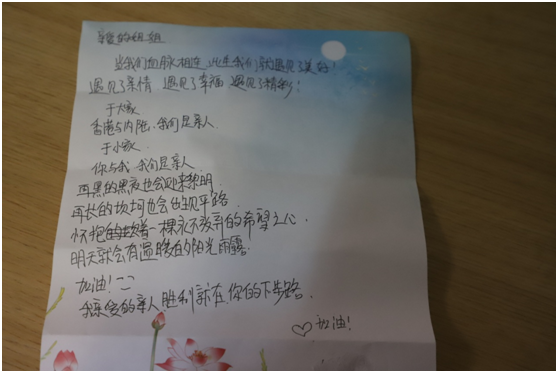 亲爱的姐姐
当我们血脉相连 此生我们就遇见了美好!
遇见了亲情 遇见了幸福 遇见了精彩!
于大家
香港与内陆,我们是亲人.
于小家.
你与我,我们是亲人.
再黑的黑夜也会迎来黎明.
再长的坎坷也会出现平路.
怀抱着一棵永不放弃的希望之心
明天就会有温暖的阳光雨露!
加油!
我亲爱的亲人胜利就在你的下步路.
加油!